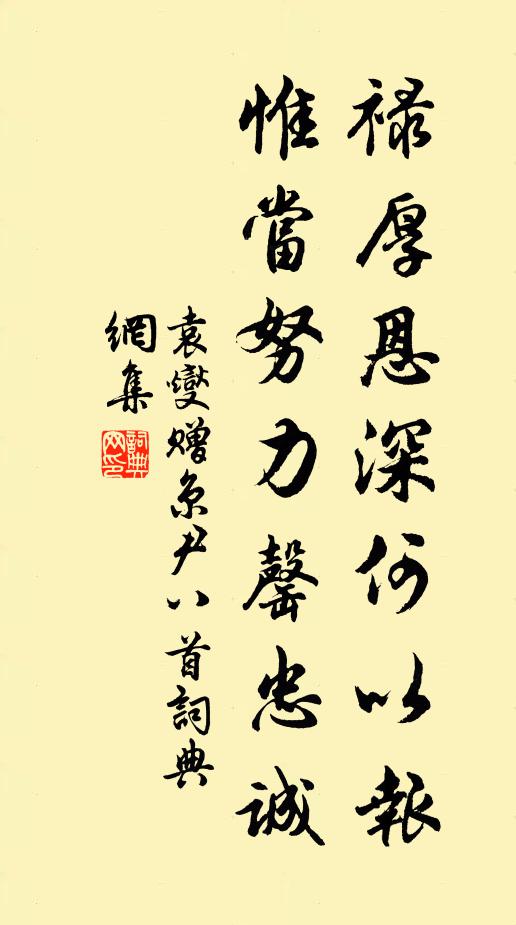 禄厚恩深何以報
惟當努力罄忠誠
袁燮贈京尹八首詞典
網集
詞典網印